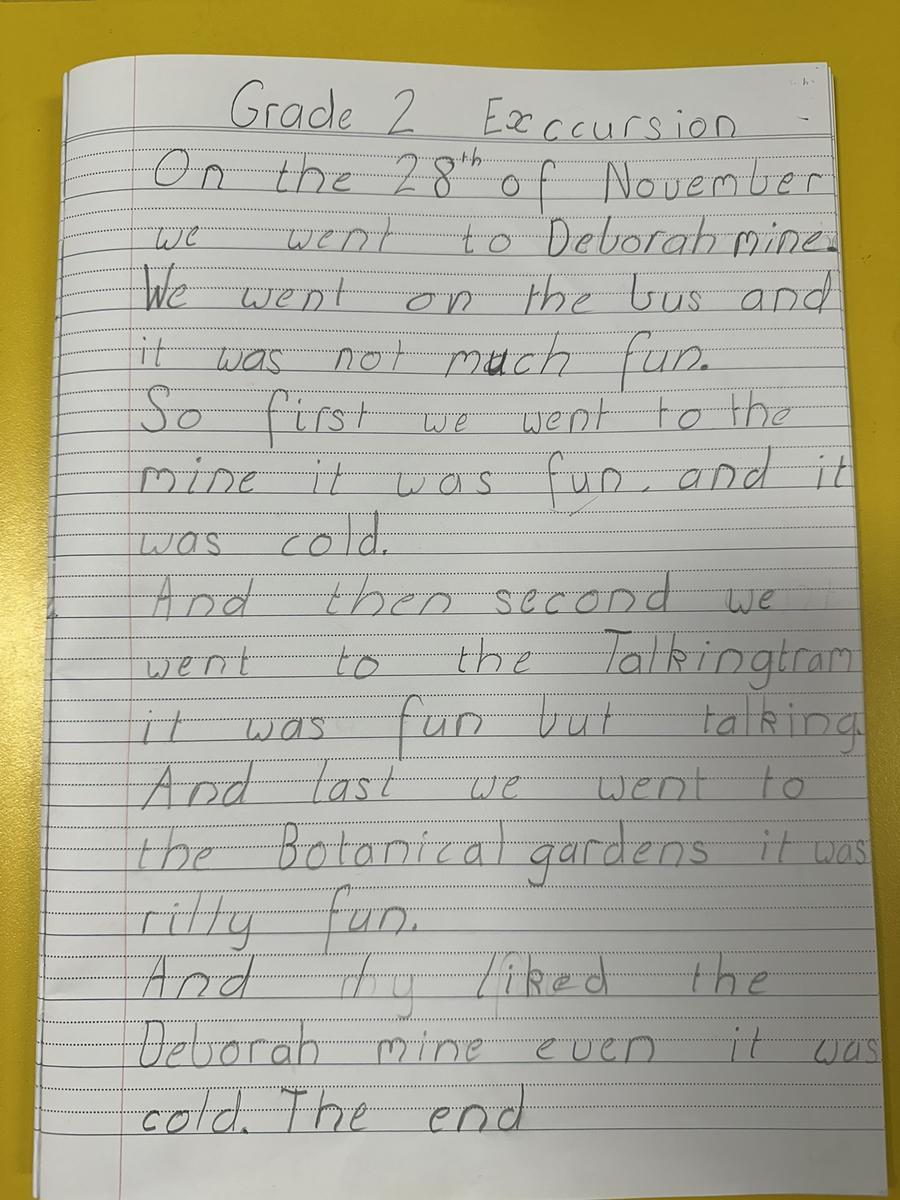 Grade 2 Exccursion
On the 28th of November
we went to Deborah mine.
We went on the bus and
it was not much fun.
So first we went to the
mine it was fun. and it
was cold.
And then second we
went to the Talkingtram
it was fun but talking.
And last we went to
the Botanical gardens it was
rilly fun.
And thy liked the
Deborah mine even it was
cold. The end